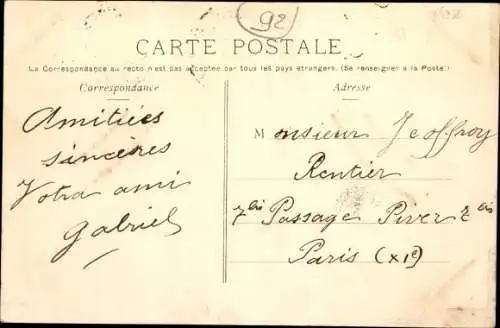 92
CARTE POSTALE
La Correspondance au recto n'est pas acceptée par tous les pays étrangers. (Se renseigner à la Poste.)
Correspondance
Adresse
Amitiées
sincères
Votra ami
Gabriel
Monsieur Jeoffroy
Rentier
7bis Passage Piver 7bis
Paris (XIe)